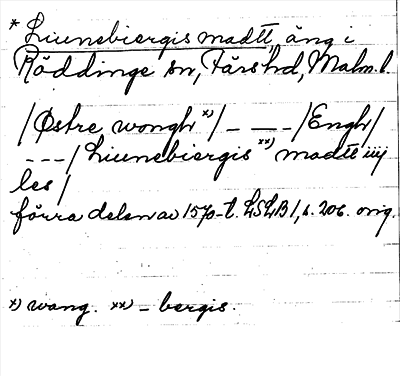 * Liunebiergis madtt, äng i
Röddinge sn, Färs hd, Malm. l.
/Østre wongh x)/ _ __ _ /Engh/
_ _ _ / Liunebiergis xx) madtt iiij
les /
förra delen av 1570-t. LSLB 1, s. 206. orig.
x) wang. xx) – bergis.